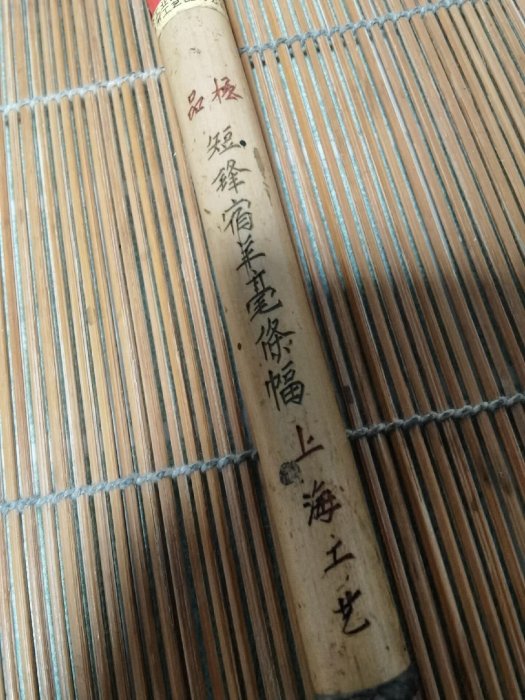 極品
短鋒宿羊毫條幅
上海工艺